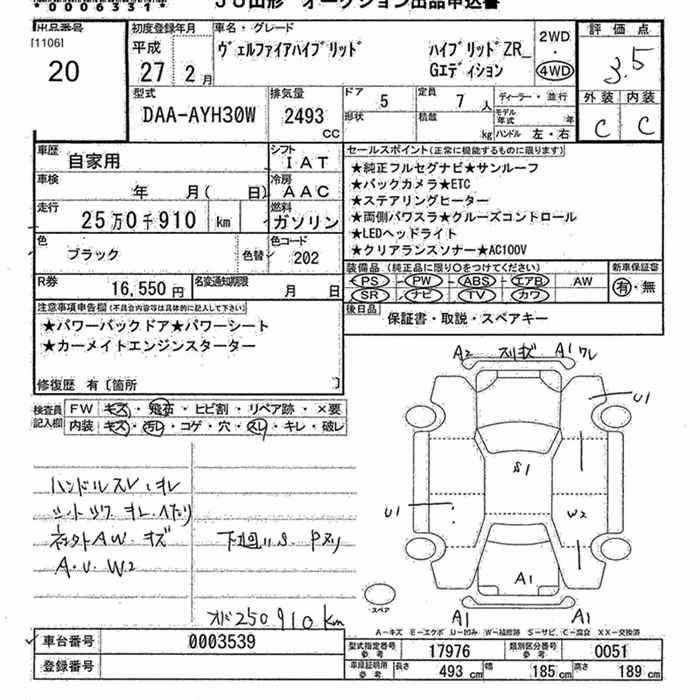 0006331
JU山形 オークション出品申込書
出品番号 初度登録年月 車名・グレード 評価点
[1106] 平成 ヴェルファイアハイブリッド ハイブリッドZR_ 2WD
20 27 2月 Gエディション 4WD 3.5
型式 排気量 ドア 5 定員 7人 ディーラー・並行 外装 内装
DAA-AYH30W 2493 CC 形状 積載 kg モデル年式 年 C C
ハンドル 左・右
車歴 自家用 シフト IAT セールスポイント(正常に機能するものに限ります)
車検 年 月( 日) 冷房 AAC ★純正フルセグナビ★サンルーフ
★バックカメラ★ETC
走行 25万0千910 km 燃料 ガソリン ★ステアリングヒーター
★両側パワスラ★クルーズコントロール
色 ブラック 色替 色コード 202 ★LEDヘッドライト
★クリアランスソナー★AC100V
R券 16,550円 名変通知期限 月 日 装備品(純正品に限り○をつけてください) 新車保証書
PS PW ABS エアB AW 有・無
SR ナビ TV カワ
注意事項申告欄(不具合内容等は具体的に記入して下さい) 後日品 保証書・取説・スペアキー
★パワーバックドア★パワーシート
★カーメイトエンジンスターター
修復歴 有〔箇所 〕
A2 スリキズ A1 ワレ
検査員記入欄 FW キズ・飛石・ヒビ割・リペア跡・×要
内装 キズ・汚レ・コゲ・穴・スレ・キレ・破レ
U1
ハンドルスレ・ヨレ
S1
シートシワ ヨレ・ヘタリ
U1 W2
AW・キズ 下廻りS・Pヌリ
A・U・W2
A1
スペア
250910km A1 A1
A-キズ E-エクボ U-凹み W-補修跡 S-サビ、C-腐食 XX-交換済
車台番号 0003539 型式指定番号 参考 17976 類別区分番号 参考 0051
登録番号 車庫証明用 参考 長さ 493cm 幅 185cm 高さ 189cm